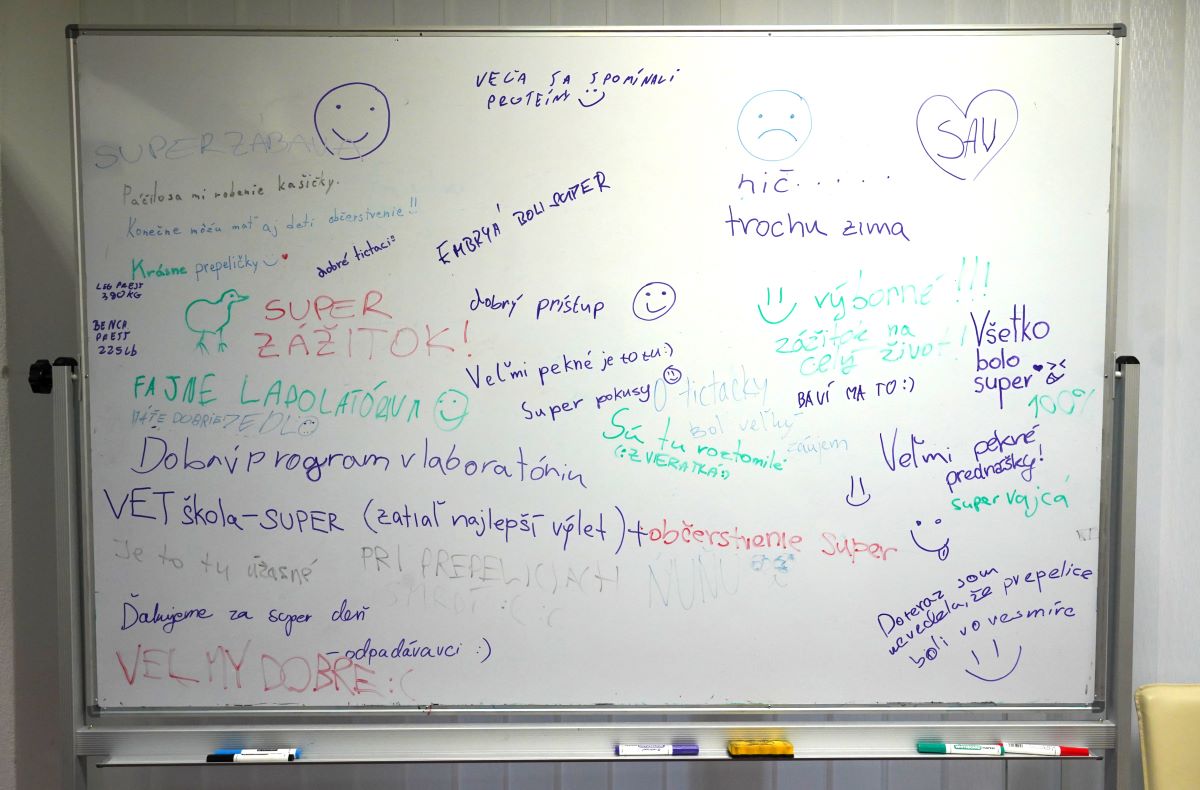 VEĽA SA SPOMÍNALI
PROTEÍNY
SUPER ZÁBAVA
SAV
Páčilosa mi robenie kašičky.
nič......
Konečne môžu mať aj deti občerstvenie!!
EMBRYÁ BOLI SUPER
trochu zima
Krásne prepeličky
dobré tictaci
LEG PRESS
380KG
SUPER
ZÁŽITOK!
dobrý prístup
výborné!!!
zážitok na
celý život!
BENCH
PRESS
225Lb
Veľmi pekné je to tu:)
Všetko
bolo
super
100%
FAJNE LABOLATÓRIUM
Super pokusy
O tictacky
bol veľký
záujem
BAVÍ MA TO:)
MÁTE DOBRÉ JEDLO
Sú tu roztomilé
(:ZVIERATKÁ:)
Veľmi pekné
prednášky!
Dobrý program v laboratóriu
super vajcá
VET škola-SUPER (zatiaľ najlepší výlet)+občerstvenie super
Je to tu úžasné
PRI PREPELICIACH
SMRDÍ :( :(
NUNU
Doteraz som
nevedela, že prepelice
boli vo vesmíre
Ďakujeme za super deň
-odpadávavci :)
VEĽMY DOBRE:(